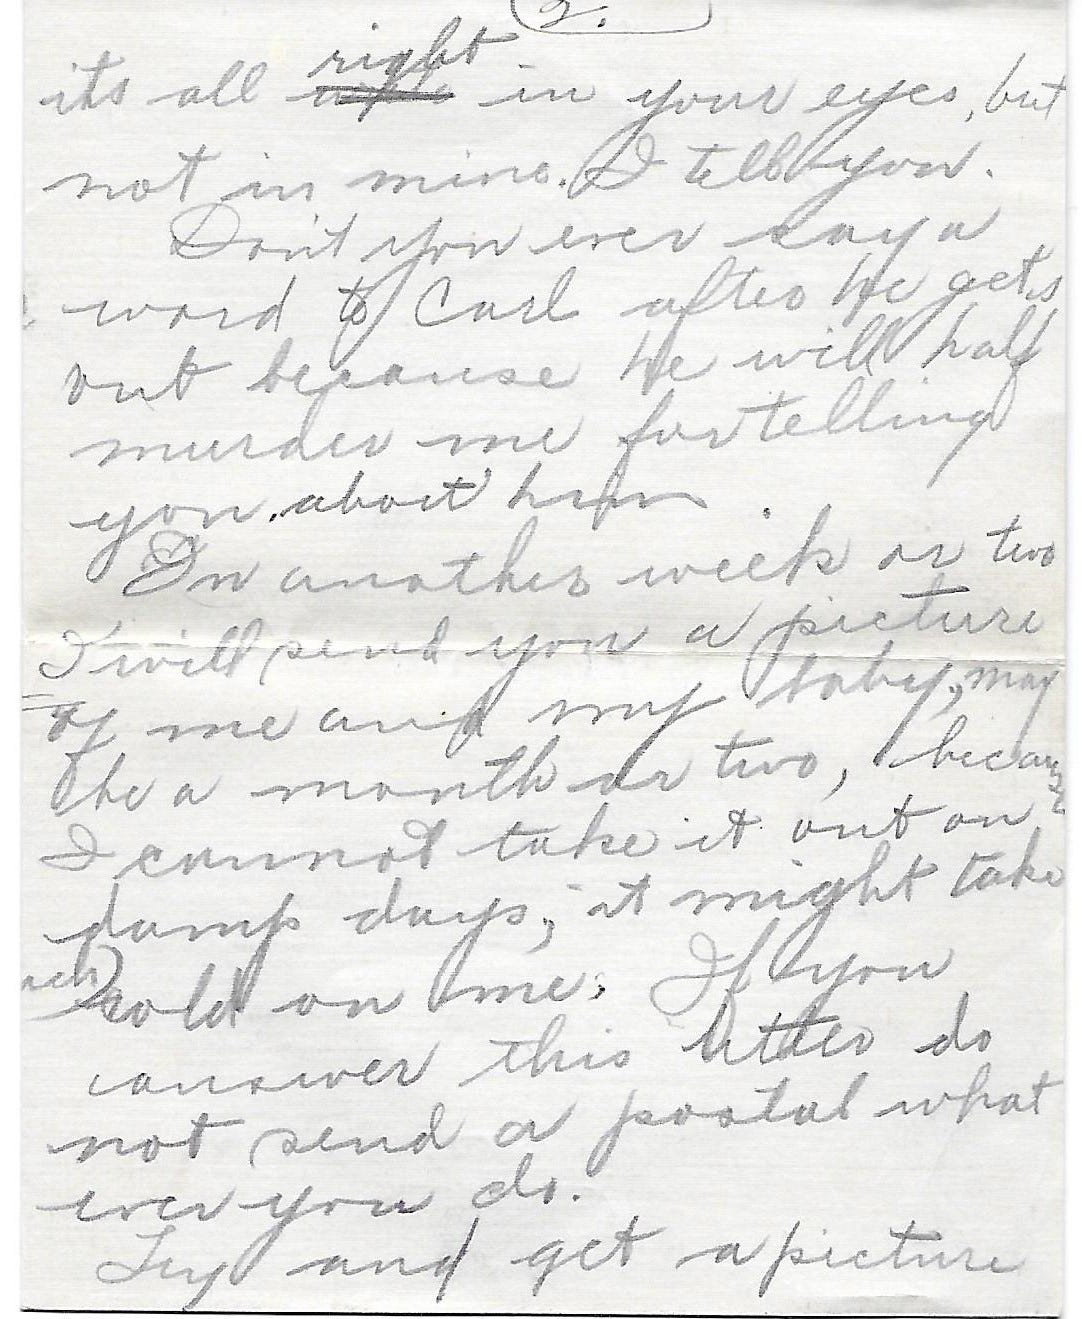 2.
its all right in your eyes, but
not in mine. I tell you.
Don't you ever say a
word to Carl after he gets
out because he will half
murder me for telling
you. about him.
In another week or two
I will send you a picture
of me and my baby, may
be a month or two, because
I cannot take it out on
damp days, it might take
cold on me. If you
answer this letter do
not send a postal what
ever you do.
Try and get a picture